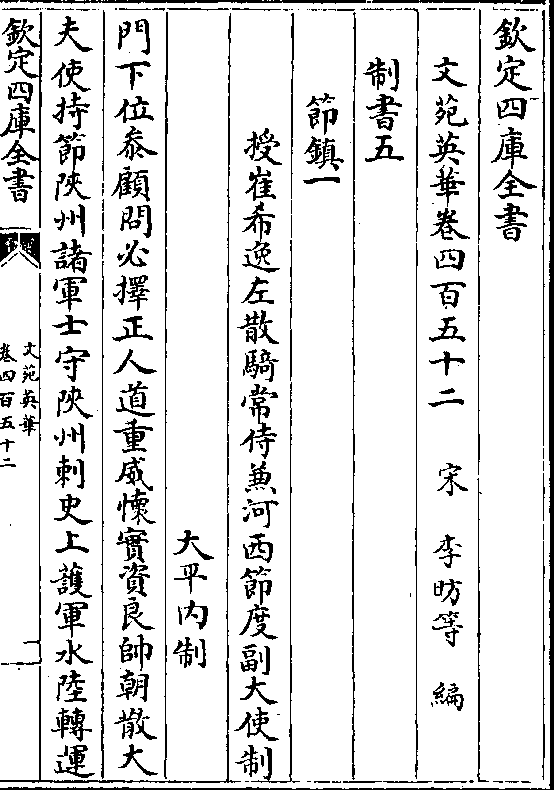 欽定四庫全書
文苑英華卷四百五十二　宋　李昉等　編
制書五
節鎮一
授崔希逸左散騎常侍兼河西節度副大使制
大平內制
門下位叅顧問必擇正人道重威懷實資良帥朝散大
夫使持節陜州諸軍士守陜州刺史上護軍水陸轉運
欽定四庫全書
文苑英華
卷四百五十二
一